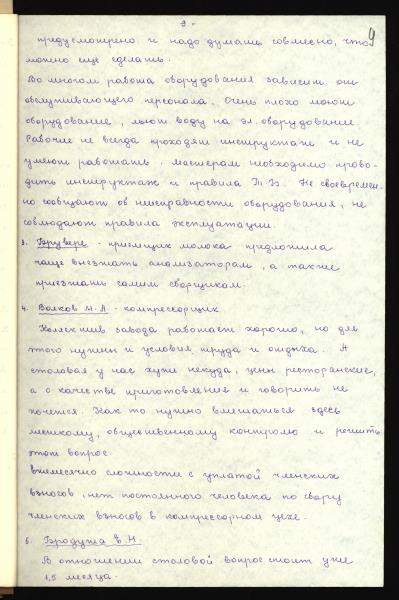 9 -
9
предусмотрено и надо думать совместно, что
можно еще сделать.
Во многом работа оборудования зависит от
обслуживающего персонала. Очень плохо моют
оборудование, льют воду на эл. оборудование.
Рабочие не всегда проходят инструктаж и не
умеют работать, мастерам необходимо прово-
дить инструктаж и правила Т.Б. Не своевремен-
но сообщают об неисправности оборудования, не
соблюдают правила эксплуатации.
3. Брувере - приемщик молока предложила
чаще выезжать анализаторам, а также
приезжать самим сборщикам.
4. Волков М.А. - компрессорщик
Коллектив завода работает хорошо, но для
этого нужны и условия труда и отдыха. А
столовая у нас хуже некуда, цены ресторанские,
а о качестве приготовления и говорить не
хочется. Как то нужно вмешаться здесь
месткому, общественному контролю и решить
этот вопрос.
Ежемесячно сложности с уплатой членских
взносов, нет постоянного человека по сбору
членских взносов в компрессорном цехе.
5. Бродужа Е.Н.
В отношении столовой вопрос стоит уже
1,5 месяца.